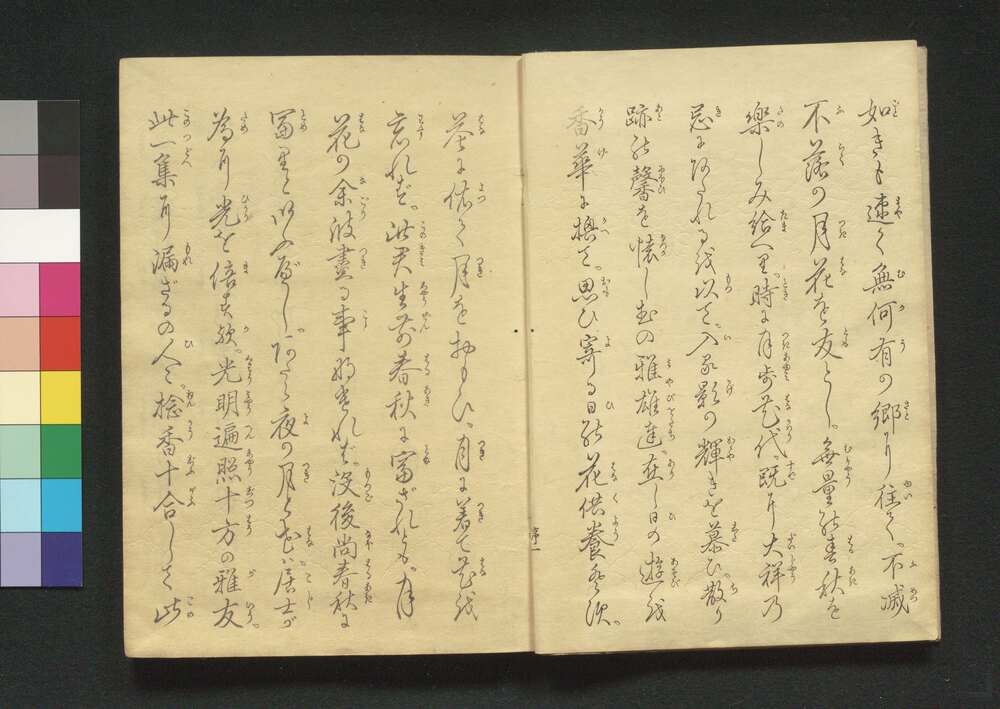 如きも速く無何有の郷に往て。不滅
不落の月花を友とし。無量の春秋を
楽しみ給へり。時に月歩花代。既に大祥の
忌にあたれるを以て。入る影の輝きを慕ひ散り
跡の馨を懐し世の雅雄達。在し日の遊を
香華に換て。思ひ寄る日の花供養をす。
花に依て月をおもひ。月に着て花を
忘れず。此君生前春秋に富ざれども。月
花の余波尽る事なければ。没後尚春秋に
冨りと以ふべし。あたら夜の月と花は居士が
為に光を倍す歟。光明遍照十方の雅友
此一集に漏ざるの人々。捻香十合して此
序一